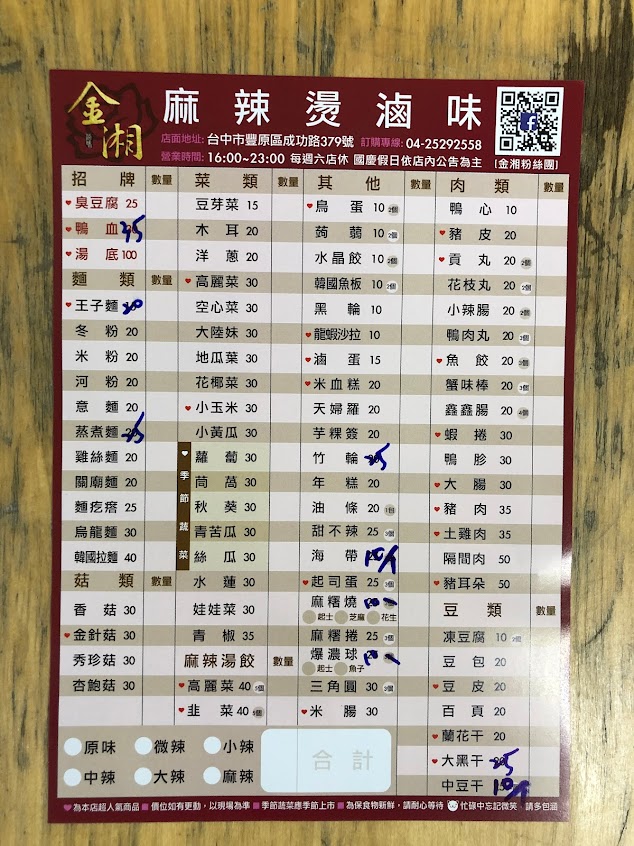 金湘
麻辣燙滷味
店面地址: 台中市豐原區成功路379號 訂購專線: 04-25292558
營業時間: 16:00~23:00 每週六店休 國慶假日依店內公告為主
[金湘粉絲團]
招牌 數量
臭豆腐 25
鴨血 35
湯底 100
麵類 數量
王子麵 20
冬粉 20
米粉 20
河粉 20
意麵 20
蒸煮麵 25
雞絲麵 20
關廟麵 20
麵疙瘩 25
烏龍麵 30
韓國拉麵 40
菇類 數量
香菇 30
金針菇 30
秀珍菇 30
杏鮑菇 30
菜類 數量
豆芽菜 15
木耳 20
洋蔥 20
高麗菜 30
空心菜 30
大陸妹 30
地瓜葉 30
花椰菜 30
小玉米 30
小黃瓜 30
季節蔬菜
蘿蔔 30
茼萵 30
秋葵 30
青苦瓜 30
絲瓜 30
水蓮 30
娃娃菜 30
青椒 35
麻辣湯餃 數量
高麗菜 40 5個
韭菜 40 5個
其他 數量
鳥蛋 10 2個
蒟蒻 10 2個
水晶餃 10 2個
韓國魚板 10 2個
黑輪 10
龍蝦沙拉 10
滷蛋 15
米血糕 20
天婦羅 20
芋粿簽 20
竹輪 25
年糕 20
油條 20 1包
甜不辣 25 3個
海帶 10/1
起司蛋 25 3個
麻糬燒 10
起士 芝麻 花生
麻糬捲 25 3個
爆濃球 10
起士 魚子
三角圓 30 3個
米腸 30
肉類 數量
鴨心 10
豬皮 20
貢丸 20 2個
花枝丸 20 2個
小辣腸 20 2個
鴨肉丸 20 3個
魚餃 20 3個
蟹味棒 20 3個
鑫鑫腸 20 4個
蝦捲 30
鴨胗 30
大腸 30
豬肉 35
土雞肉 35
隔間肉 50
豬耳朵 50
豆類 數量
凍豆腐 10 2個
豆包 20
豆皮 20
百頁 20
蘭花干 20
大黑干 25
中豆干
原味 微辣 小辣
中辣 大辣 麻辣
合計
為本店超人氣商品 價位如有更動，以現場為準 季節蔬菜應季節上市 為保食物新鮮，請耐心等待 忙碌中忘記微笑，請多包涵